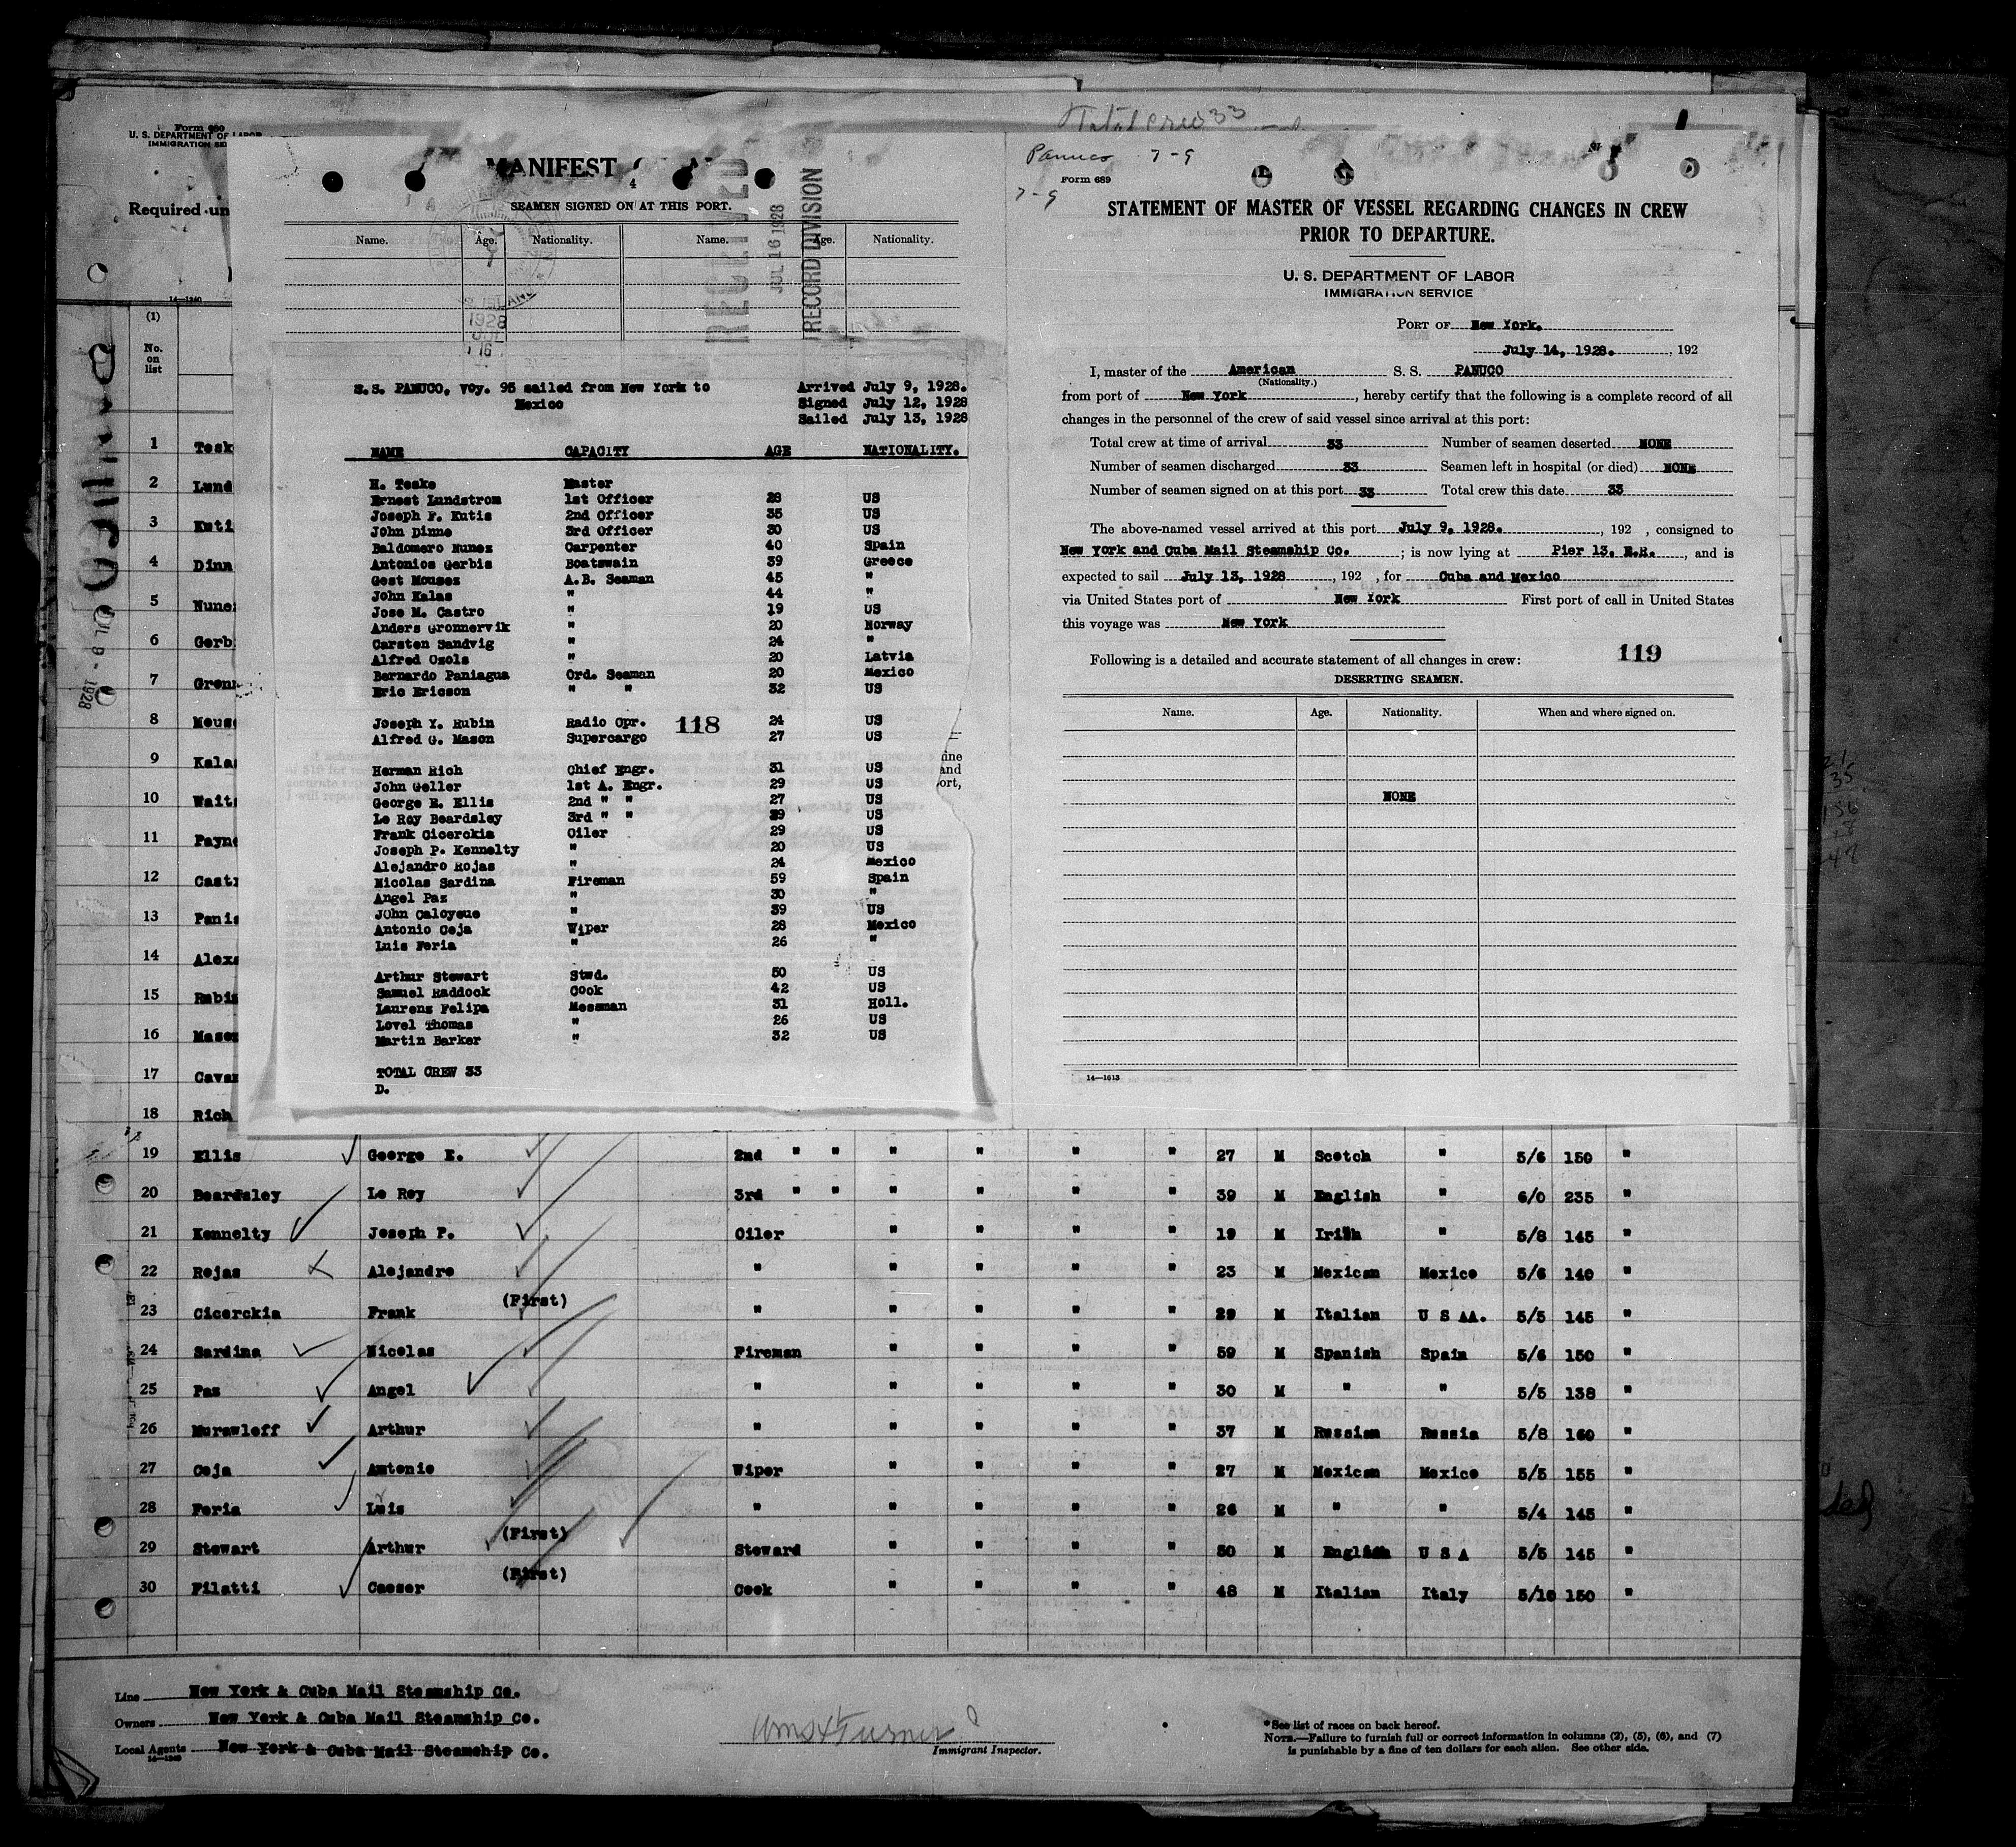 Form 680
U. S. DEPARTMENT OF LABOR
IMMIGRATION SER
Required un
14—1240
(1)
No.
on
list
1 Tesk
2 Lund
3 Kuti
4 Dinn
5 Nune
6 Gerb
7 Gronn
8 Mouse
9 Kalas
10 Waits
11 Payne
12 Cast
13 Pania
14 Alexa
15 Rubin
16 Mason
17 Cavan
18 Rich
MANIFEST
4
SEAMEN SIGNED ON AT THIS PORT.
Name. Age. Nationality. Name. Age. Nationality.
RECEIVED
JUL 16 1928
RECORD DIVISION
1928
JUL
16
S.S. PANUCO, Voy. 95 sailed from New York to Mexico
Arrived July 9, 1928.
Signed July 12, 1928
Sailed July 13, 1928
NAME CAPACITY AGE NATIONALITY.
H. Teske Master
Ernest Lundstrom 1st Officer 28 US
Joseph F. Kutis 2nd Officer 35 US
John Dinne 3rd Officer 30 US
Baldomero Nunez Carpenter 40 Spain
Antonios Gerbis Boatswain 39 Greece
Gest Mouses A.B. Seaman 45 "
John Kalas " 44 "
Jose M. Castro " 19 US
Anders Gronnervik " 20 Norway
Carsten Sandvig " 24 "
Alfred Ozols " 20 Latvia
Bernardo Paniagua Ord. Seaman 20 Mexico
Eric Ericson " " 32 US
Joseph Y. Rubin Radio Opr. 24 US
118
Alfred G. Mason Supercargo 27 US
Herman Rich Chief Engr. 31 US
John Geller 1st A. Engr. 29 US
George E. Ellis 2nd " " 27 US
Le Roy Beardsley 3rd " " 39 US
Frank Cicerckia Oiler 29 US
Joseph P. Kennelty " 20 US
Alejandro Rojas " 24 Mexico
Nicolas Sardina Fireman 59 Spain
Angel Paz " 30 "
John Caloyeue " 39 US
Antonio Ceja Wiper 28 Mexico
Luis Feria " 26 "
Arthur Stewart Stwd. 50 US
Samuel Raddock Cook 42 US
Laurens Felipa Messman 31 Holl.
Lovel Thomas " 26 US
Martin Barker " 32 US
TOTAL CREW 33
D.
ine
and
ort,
Total crew 33
Panuco 7-9
7-9
Form 689
STATEMENT OF MASTER OF VESSEL REGARDING CHANGES IN CREW
PRIOR TO DEPARTURE.
U. S. DEPARTMENT OF LABOR
IMMIGRATION SERVICE
PORT OF New York.
July 14, 1928. , 192
I, master of the American S. S. PANUCO
(Nationality.)
from port of New York , hereby certify that the following is a complete record of all
changes in the personnel of the crew of said vessel since arrival at this port:
Total crew at time of arrival 33 Number of seamen deserted NONE
Number of seamen discharged 33 Seamen left in hospital (or died) NONE
Number of seamen signed on at this port 33 Total crew this date 33
The above-named vessel arrived at this port July 9, 1928. , 192 , consigned to
New York and Cuba Mail Steamship Co. ; is now lying at Pier 13. E.R. , and is
expected to sail July 13, 1928 , 192 , for Cuba and Mexico
via United States port of New York First port of call in United States
this voyage was New York
119
Following is a detailed and accurate statement of all changes in crew:
DESERTING SEAMEN.
Name. Age. Nationality. When and where signed on.
NONE
14—1613
19 Ellis George E. 2nd " " " " " " 27 M Scotch " 5/6 150 "
20 Beardsley Le Roy 3rd " " " " " " 39 M English " 6/0 235 "
21 Kennelty Joseph P. Oiler " " " " 19 M Irish " 5/8 145 "
22 Rojas Alejandro " " " " " 23 M Mexican Mexico 5/6 140 "
(First)
23 Cicerckia Frank " " " " " 29 M Italian U S AA. 5/5 145 "
24 Sardina Nicolas Fireman " " " " 59 M Spanish Spain 5/6 150 "
25 Paz Angel " " " " " 30 M " " 5/5 138 "
26 Murawleff Arthur " " " " " 37 M Russian Russia 5/8 160 "
27 Ceja Antonio Wiper " " " " 27 M Mexican Mexico 5/5 155 "
28 Feria Luis " " " " " 26 M " " 5/4 145 "
(First)
29 Stewart Arthur Steward " " " " 50 M English U S A 5/5 145 "
(First)
30 Filatti Caeser Cook " " " " 48 M Italian Italy 5/10 150 "
Line New York & Cuba Mail Steamship Co.
Owners New York & Cuba Mail Steamship Co.
Local Agents New York & Cuba Mail Steamship Co.
14—1240
Immigrant Inspector.
*See list of races on back hereof.
NOTE.—Failure to furnish full or correct information in columns (2), (5), (6), and (7)
is punishable by a fine of ten dollars for each alien. See other side.